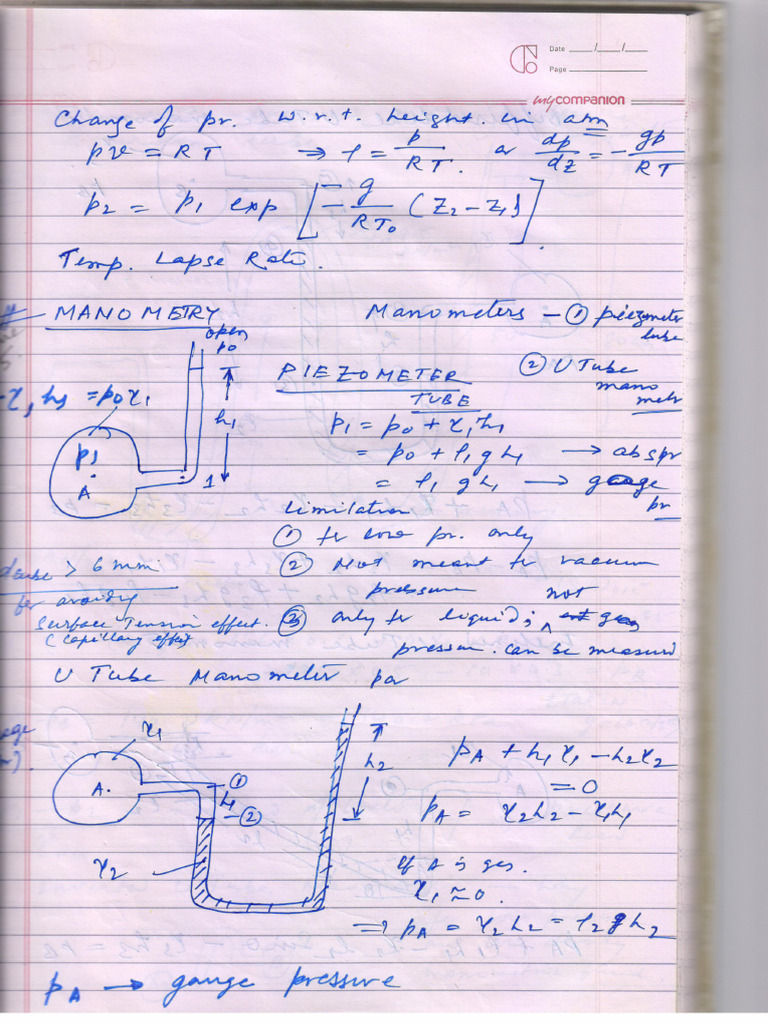 Date ___/___/___
Page
mycompanion
Change of pr. w.r.t. height in atm
pv = RT ⇒ ρ = p/RT. or dp/dz = - gp/RT
p2 = p1 exp [ - g/RT0 (Z2 - Z1) ].
Temp. Lapse Rate.
# MANOMETRY Manometers - ① piezometer tube
② U Tube manometer
open
p0
h1
PIEZOMETER TUBE
γ1 h1 = p0 γ1
p1
A
1
p1 = p0 + γ1 h1
= p0 + ρ1 g h1 → abs pr
= ρ1 g h1 → gauge pr
limitation
① for low pr. only
② Not meant for vacuum pressure
③ only for liquids, not gas
pressure. can be measured
dtube > 6 mm
for avoiding
Surface Tension effect.
(Capillary effect
U Tube Manometer
γ1
A.
①
h1
②
h2
γ2
pA + h1 γ1 - h2 γ2
= 0
pA = γ2 h2 - γ1 h1
If A is gas.
γ1 ≃ 0.
⇒ pA = γ2 h2 = ρ2 g h2
pA → gauge pressure